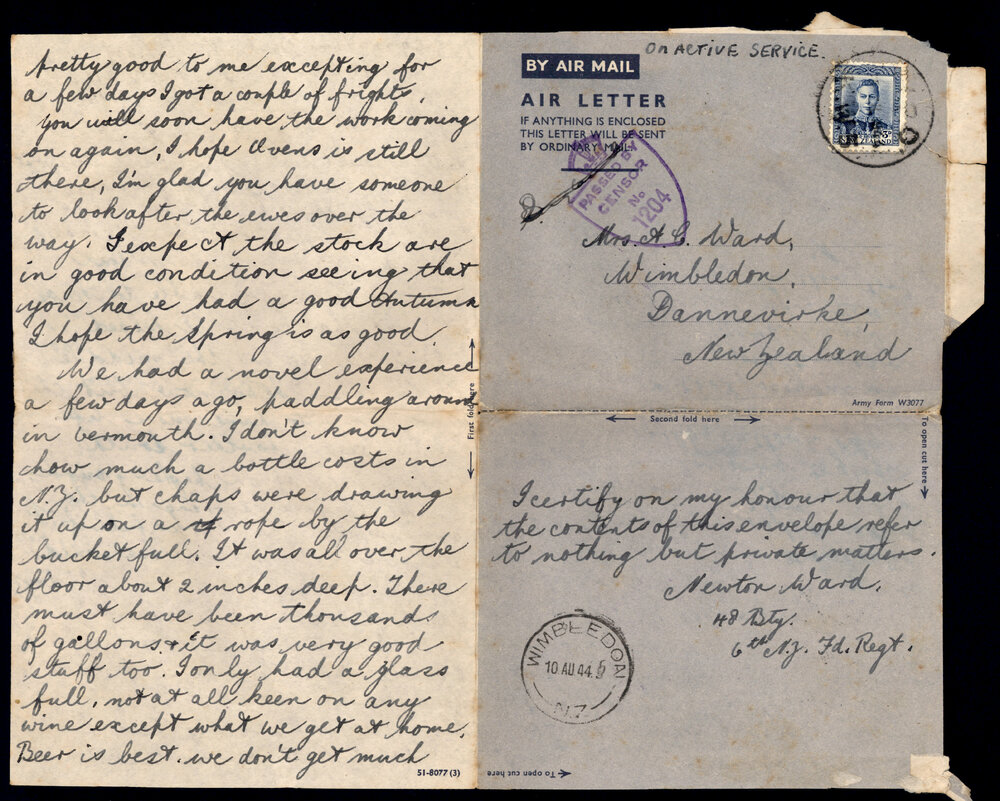 pretty good to me excepting for
a few days I got a couple of frights,
you will soon have the work coming
on again, I hope Ovens is still
there, I'm glad you have someone
to look after the ewes over the
way. I expect the stock are
in good condition seeing that
you have had a good Autumn
I hope the Spring is as good.
We had a novel experience
a few days ago, paddling around
in vermouth. I don't know
how much a bottle costs in
N.Z. but chaps were drawing
it up on a rope by the
bucket full. It was all over the
floor about 2 inches deep. There
must have been thousands
of gallons & it was very good
stuff too. I only had a glass
full, not at all keen on any
wine except what we get at home.
Beer is best. we don't get much
51-8077 (3)
First fold here
On ACTIVE SERVICE.
BY AIR MAIL
AIR LETTER
IF ANYTHING IS ENCLOSED
THIS LETTER WILL BE SENT
BY ORDINARY MAIL.
PASSED BY
CENSOR
No
1204
3D
Mrs A C. Ward,
Wimbledon,
Dannevirke,
New Zealand
Army Form W3077
Second fold here
To open cut here
I certify on my honour that
the contents of this envelope refer
to nothing but private matters.
Newton Ward.
48 Bty.
6th N.Z. Fd. Regt.
WIMBLEDON
10 AU 44
N.Z.
To open cut here